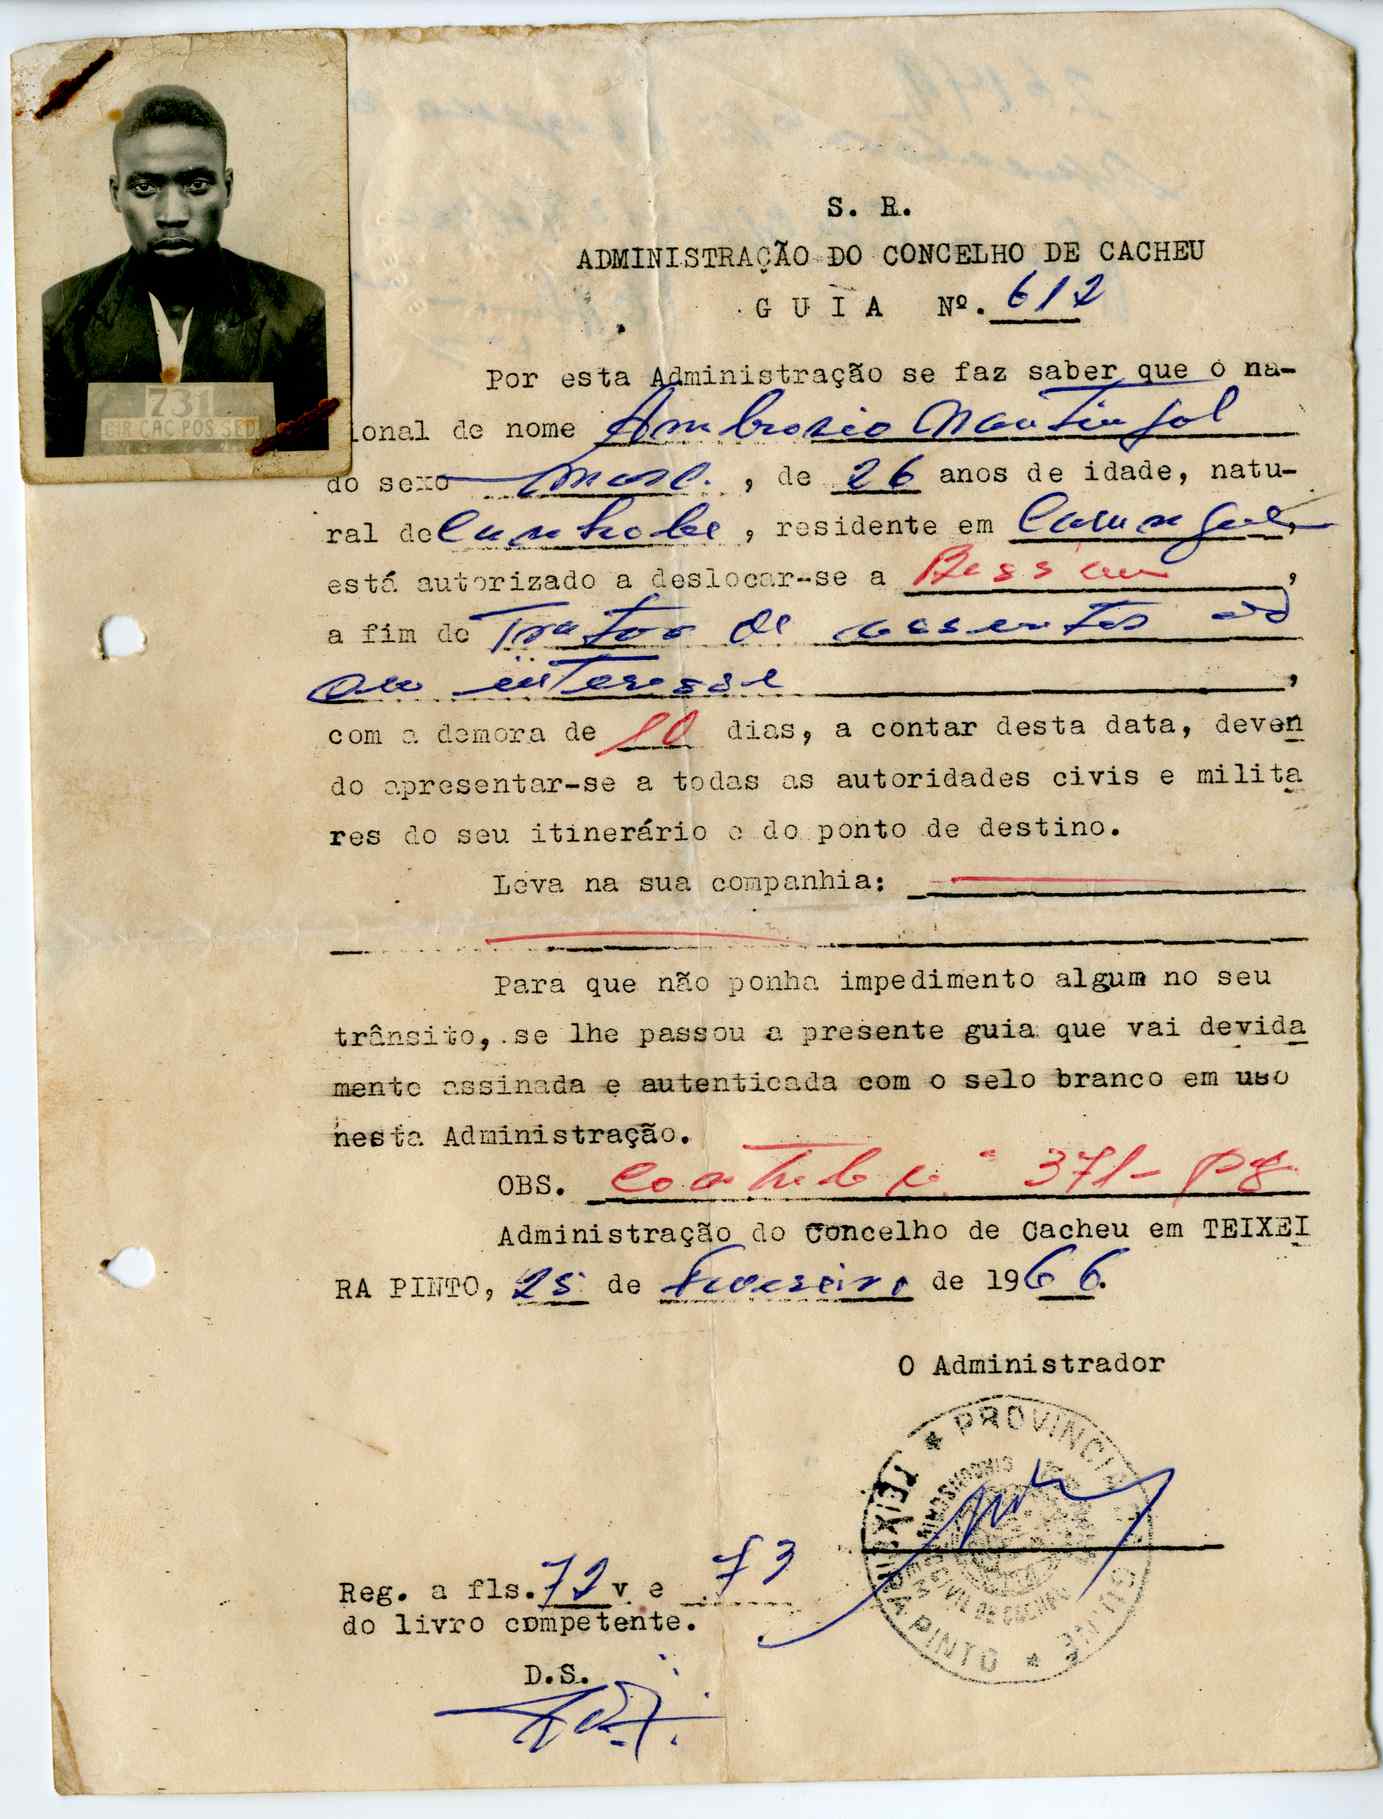 731
CIR CAC POS SED
S. R.
ADMINISTRAÇÃO DO CONCELHO DE CACHEU
G U I A Nº. 612
Por esta Administração se faz saber que o na-
ional de nome Ambrosio
do sexo masc. , de 26 anos de idade, natu-
ral de , residente em
está autorizado a deslocar-se a Bissau ,
a fim de Tratar de assuntos do
seu interesse ,
com a demora de 10 dias, a contar desta data, deven
do apresentar-se a todas as autoridades civis e milita
res do seu itinerário e do ponto de destino.
Leva na sua companhia:
Para que não ponha impedimento algum no seu
trânsito, se lhe passou a presente guia que vai devida
mente assinada e autenticada com o selo branco em uso
nesta Administração.
OBS. 371-
Administração do Concelho de Cacheu em TEIXEI
RA PINTO, 25 de fevereiro de 1966.
O Administrador
PROVINCIA GUINÉ
CIRCUNSCRIÇÃO CIVIL DE CACHEU
EM
TEIXEIRA PINTO
Reg. a fls. 72 v e 73
do livro competente.
D.S.